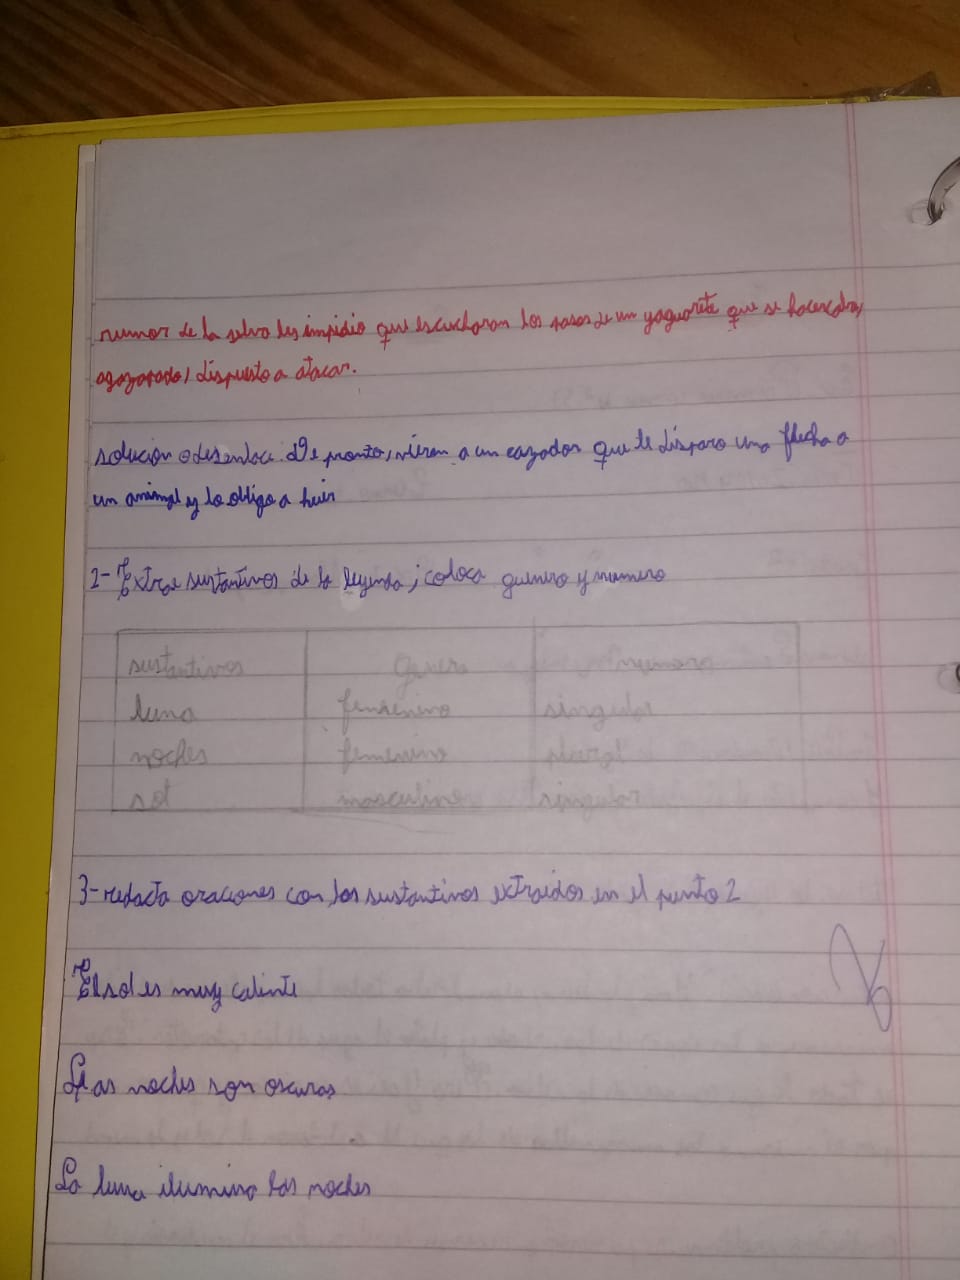 rumor de la selva les impidio que escucharan los pasos de un yaguareté que se hacercaba,
agazapado, dispuesto a atacar.
solucion o desenlace: De pronto, vieron a un cazador que le disparo una flecha a
un animal y lo obligo a huir
2- Extrae sustantivos de la leyenda; coloca guenero y numero
sustantivos genero numero
luna femenino singular
noches femenino plural
sol masculino singular
3- redacta oraciones con los sustantivos extraidos en el punto 2
El sol es muy caliente
Las noches son oscuras
La luna ilumina las noches